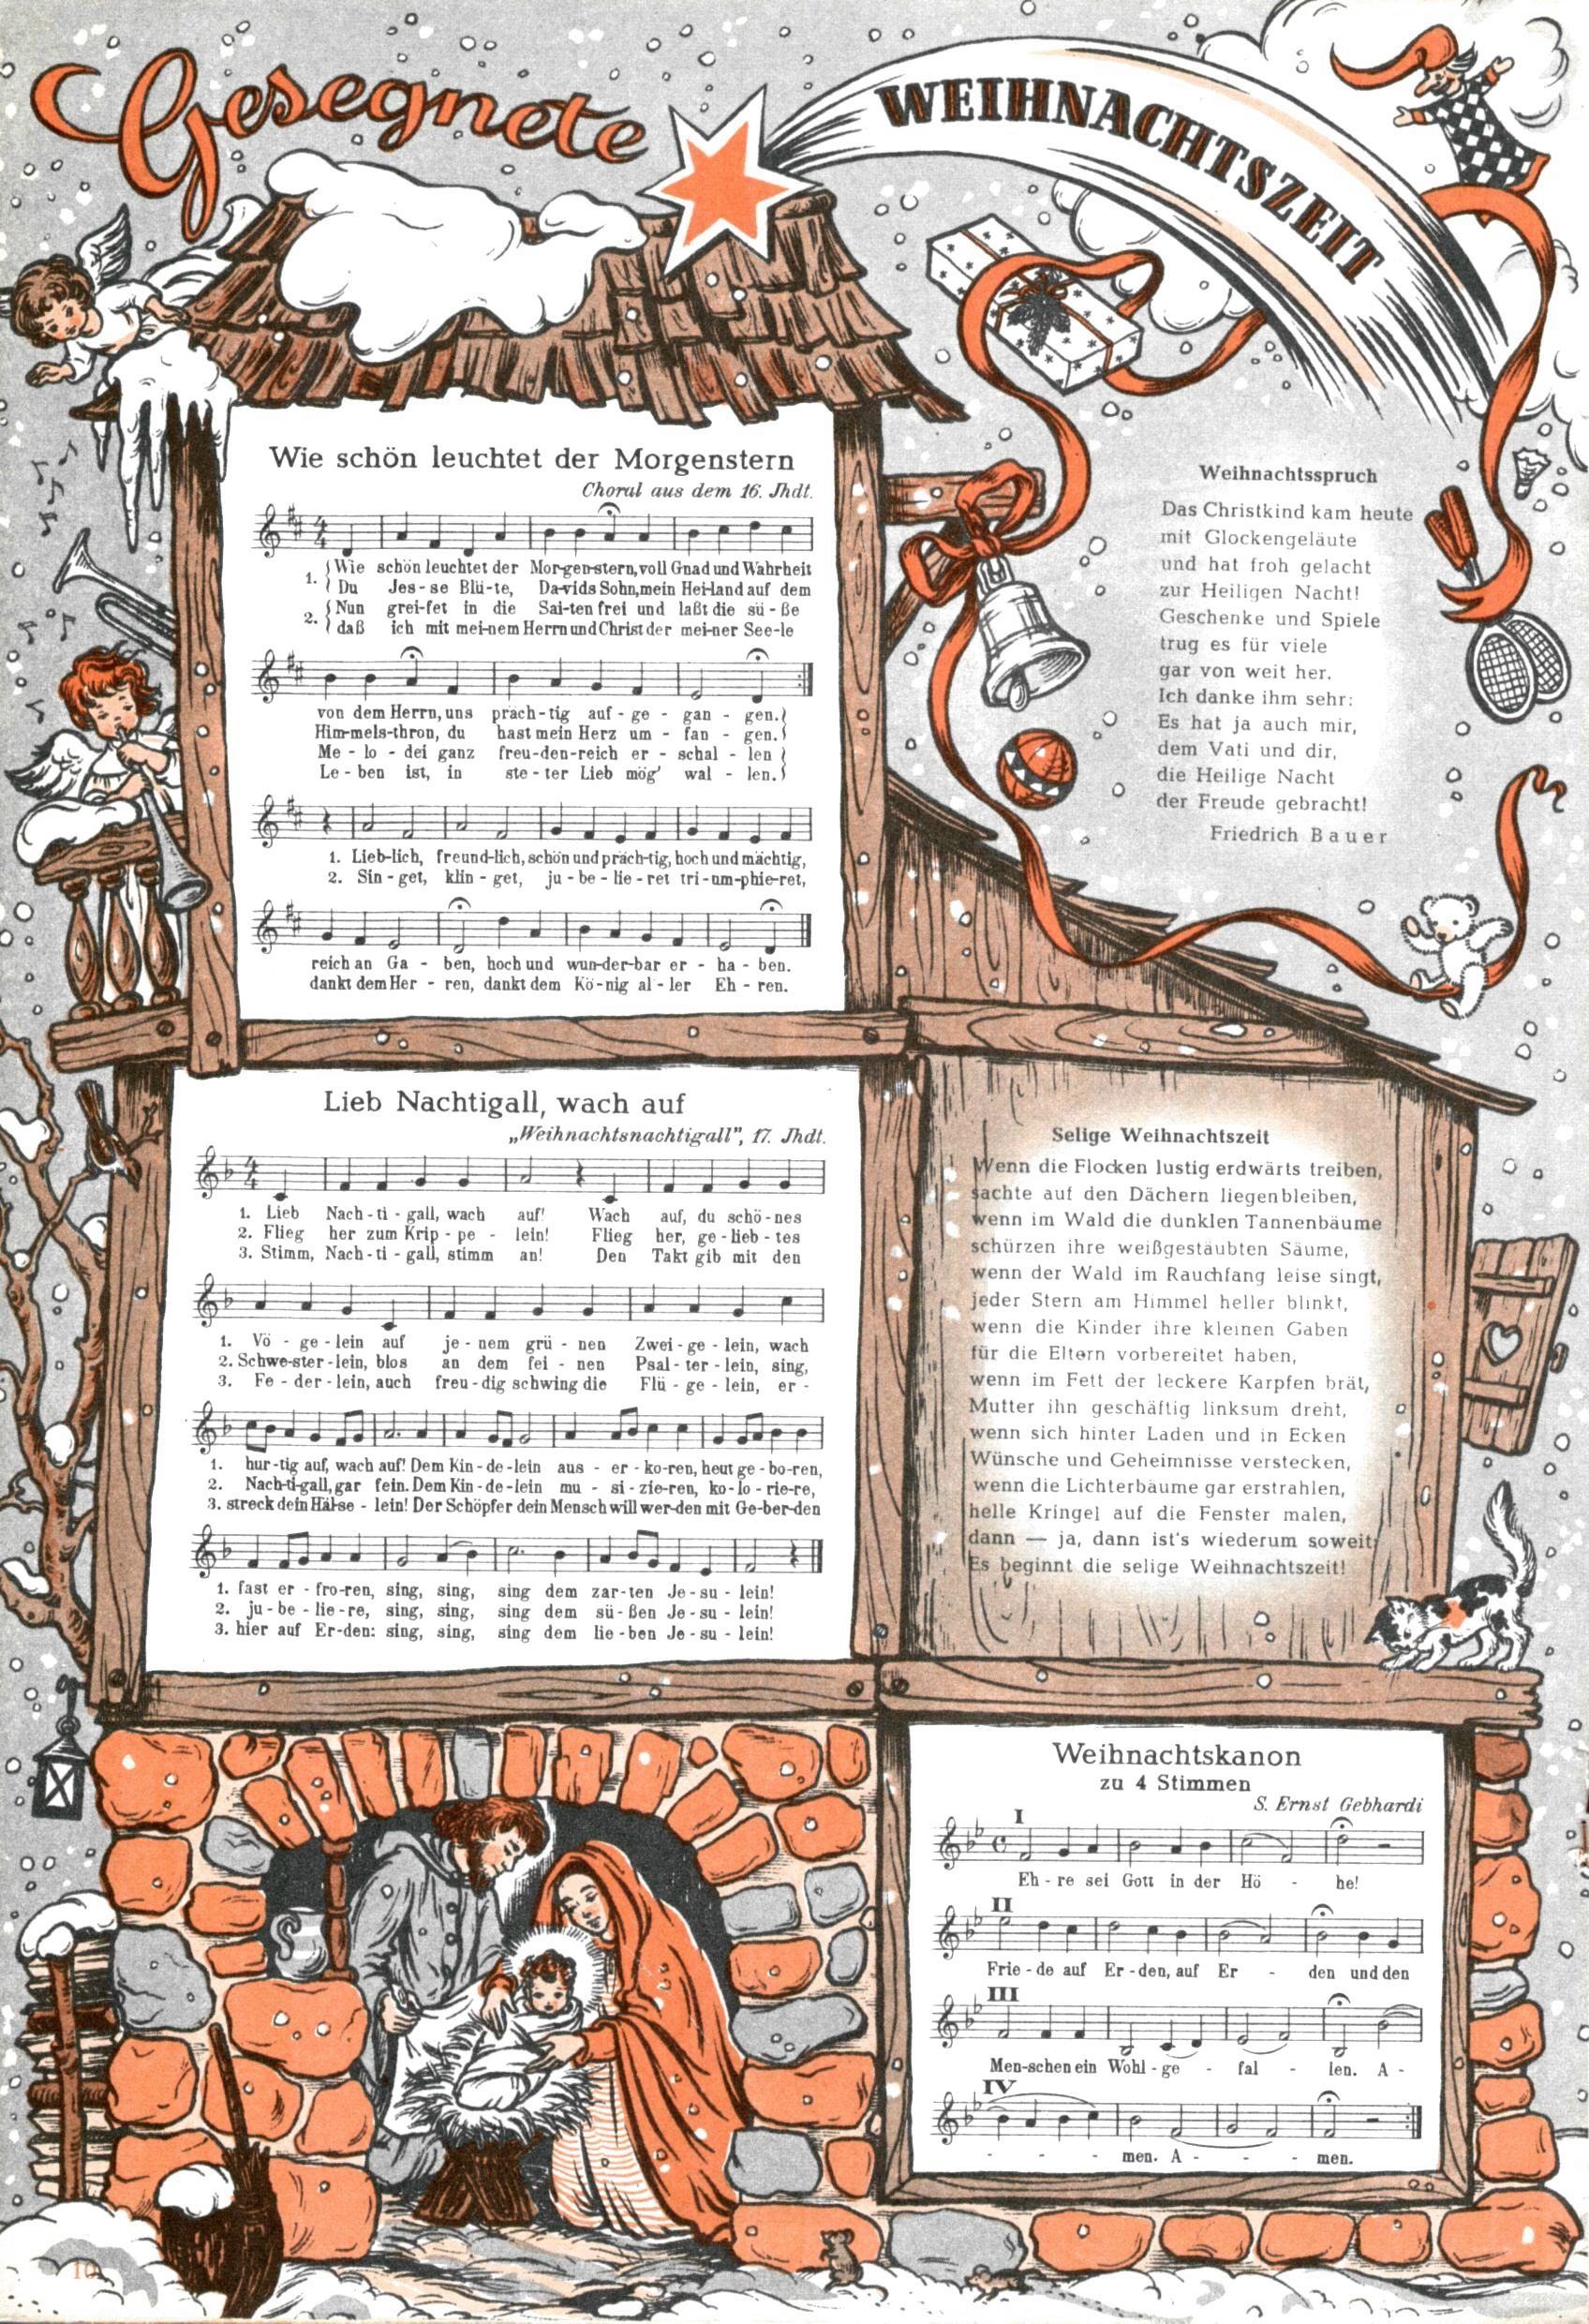 Gesegnete
WEIHNACHTSZEIT
Wie schön leuchtet der Morgenstern
Choral aus dem 16. Jhdt.
1. Wie schön leuchtet der Mor-gen-stern, voll Gnad und Wahrheit
Du Jes-se Blü-te, Da-vids Sohn, mein Hei-land auf dem
2. Nun grei-fet in die Sai-ten frei und laßt die sü-ße
daß ich mit mei-nem Herrn und Christ der mei-ner See-le
von dem Herrn, uns präch-tig auf-ge-gan-gen.
Him-mels-thron, du hast mein Herz um-fan-gen.
Me-lo-dei ganz freu-den-reich er-schal-len
Le-ben ist, in ste-ter Lieb mög' wal-len.
1. Lieb-lich, freund-lich, schön und präch-tig, hoch und mächtig,
2. Sin-get, klin-get, ju-be-lie-ret tri-um-phie-ret,
reich an Ga-ben, hoch und wun-der-bar er-ha-ben.
dankt dem Her-ren, dankt dem Kö-nig al-ler Eh-ren.
Weihnachtsspruch
Das Christkind kam heute
mit Glockengeläute
und hat froh gelacht
zur Heiligen Nacht!
Geschenke und Spiele
trug es für viele
gar von weit her.
Ich danke ihm sehr:
Es hat ja auch mir,
dem Vati und dir,
die Heilige Nacht
der Freude gebracht!
Friedrich Bauer
Lieb Nachtigall, wach auf
„Weihnachtsnachtigall", 17. Jhdt.
1. Lieb Nach-ti-gall, wach auf! Wach auf, du schö-nes
2. Flieg her zum Krip-pe-lein! Flieg her, ge-lieb-tes
3. Stimm, Nach-ti-gall, stimm an! Den Takt gib mit den
1. Vö-ge-lein auf je-nem grü-nen Zwei-ge-lein, wach
2. Schwe-ster-lein, blos an dem fei-nen Psal-ter-lein, sing,
3. Fe-der-lein, auch freu-dig schwing die Flü-ge-lein, er-
1. hur-tig auf, wach auf! Dem Kin-de-lein aus-er-ko-ren, heut ge-bo-ren,
2. Nach-ti-gall, gar fein. Dem Kin-de-lein mu-si-zie-ren, ko-lo-rie-re,
3. streck dein Häl-se-lein! Der Schöpfer dein Mensch will wer-den mit Ge-ber-den
1. fast er-fro-ren, sing, sing, sing dem zar-ten Je-su-lein!
2. ju-be-lie-re, sing, sing, sing dem sü-ßen Je-su-lein!
3. hier auf Er-den: sing, sing, sing dem lie-ben Je-su-lein!
Selige Weihnachtszeit
Wenn die Flocken lustig erdwärts treiben,
sachte auf den Dächern liegenbleiben,
wenn im Wald die dunklen Tannenbäume
schürzen ihre weißgestäubten Säume,
wenn der Wald im Rauchfang leise singt,
jeder Stern am Himmel heller blinkt,
wenn die Kinder ihre kleinen Gaben
für die Eltern vorbereitet haben,
wenn im Fett der leckere Karpfen brät,
Mutter ihn geschäftig linksum dreht,
wenn sich hinter Laden und in Ecken
Wünsche und Geheimnisse verstecken,
wenn die Lichterbäume gar erstrahlen,
helle Kringel auf die Fenster malen,
dann — ja, dann ist's wiederum soweit:
Es beginnt die selige Weihnachtszeit!
Weihnachtskanon
zu 4 Stimmen
S. Ernst Gebhardi
I
Eh-re sei Gott in der Hö-he!
II
Frie-de auf Er-den, auf Er-den und den
III
Men-schen ein Wohl-ge-fal-len. A-
IV
- - - men. A - - - men.
10